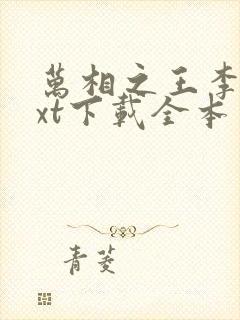 萬相之王李
xt下載全本
青菱